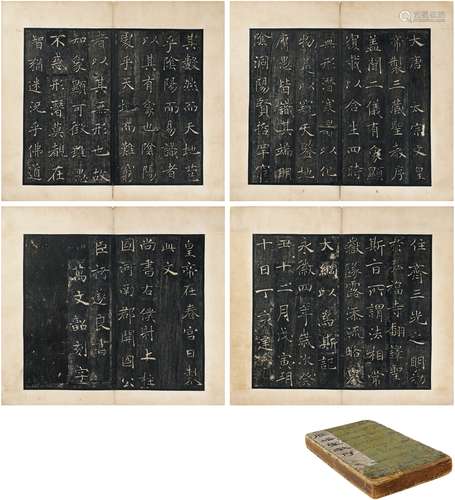 大唐太宗文皇
帝製三藏聖教序
蓋聞二儀有象顯
覆載以含生四時
無形潛寒暑以化
物是以窺天鑒地
庸愚皆識其端明
陰洞陽賢哲罕窮
其數然而天地苞
乎陰陽而易識者
以其有象也陰陽
處乎天地而難窮
者以其無形也故
知象顯可徵雖愚
不惑形潛莫覩在
智猶迷況乎佛道
住齊三光之明
於弘福寺翻譯聖
斯旨所謂法相常
嶽墜露添流略舉
大綱以為斯記
永徽四年歲次癸
丑十二月戊寅朔
十日丁亥建
皇帝在春宮日製
此文
尚書右僕射上柱
國河南郡開國公
臣褚遂良書
萬文韶刻字